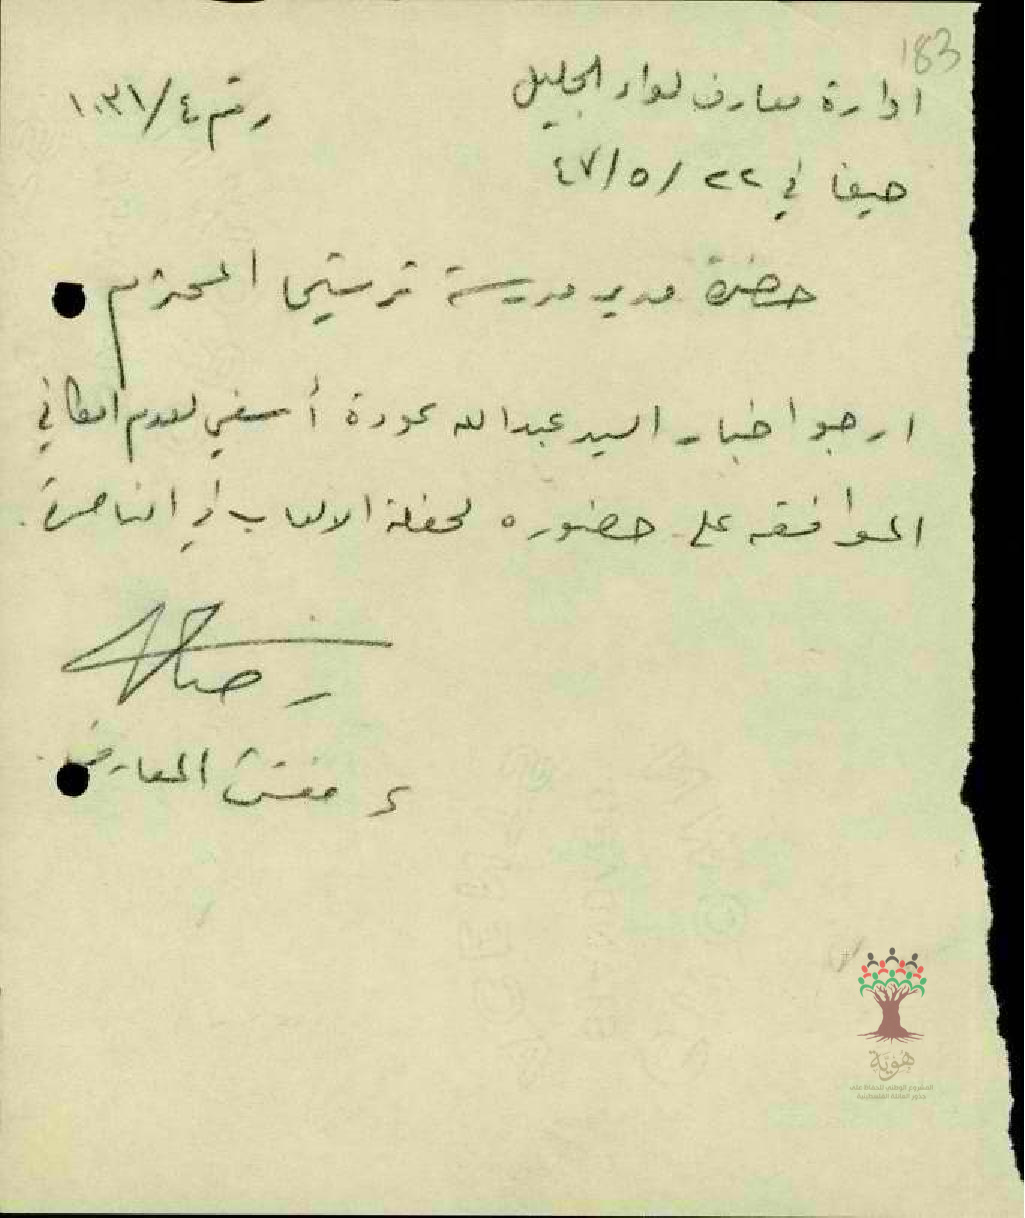 183
ادارة معارف لواء الجليل
رقم ٤/١٠٣١
حيفا في ٢٢/٥/٤٧
حضرة مدير مدرسة ترشيحا المحترم
ارجو اخبار السيد عبدالله عودة أسفي لعدم امكاني
الموافقه على حضوره لحفلة الالعاب في الناصرة.
ع مفتش المعارف
هوية
المشروع الوطني للحفاظ على
جذور العائلة الفلسطينية